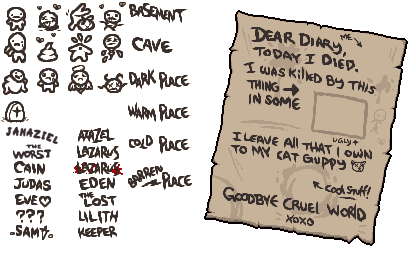 BASEMENT
CAVE
DARK PLACE
WARM PLACE
COLD PLACE
BARREN PLACE
JAHAZIEL
THE WORST
CAIN
JUDAS
EVE
???
SAM
AZAZEL
LAZARUS
LAZARUS
EDEN
THE LOST
LILITH
KEEPER
DEAR DIARY,
ME
TODAY I DIED.
I WAS KILLED BY THIS
THING
IN SOME
UGLY
I LEAVE ALL THAT I OWN
TO MY CAT GUPPY
COOL STUFF!
GOODBYE CRUEL WORLD
XOXO